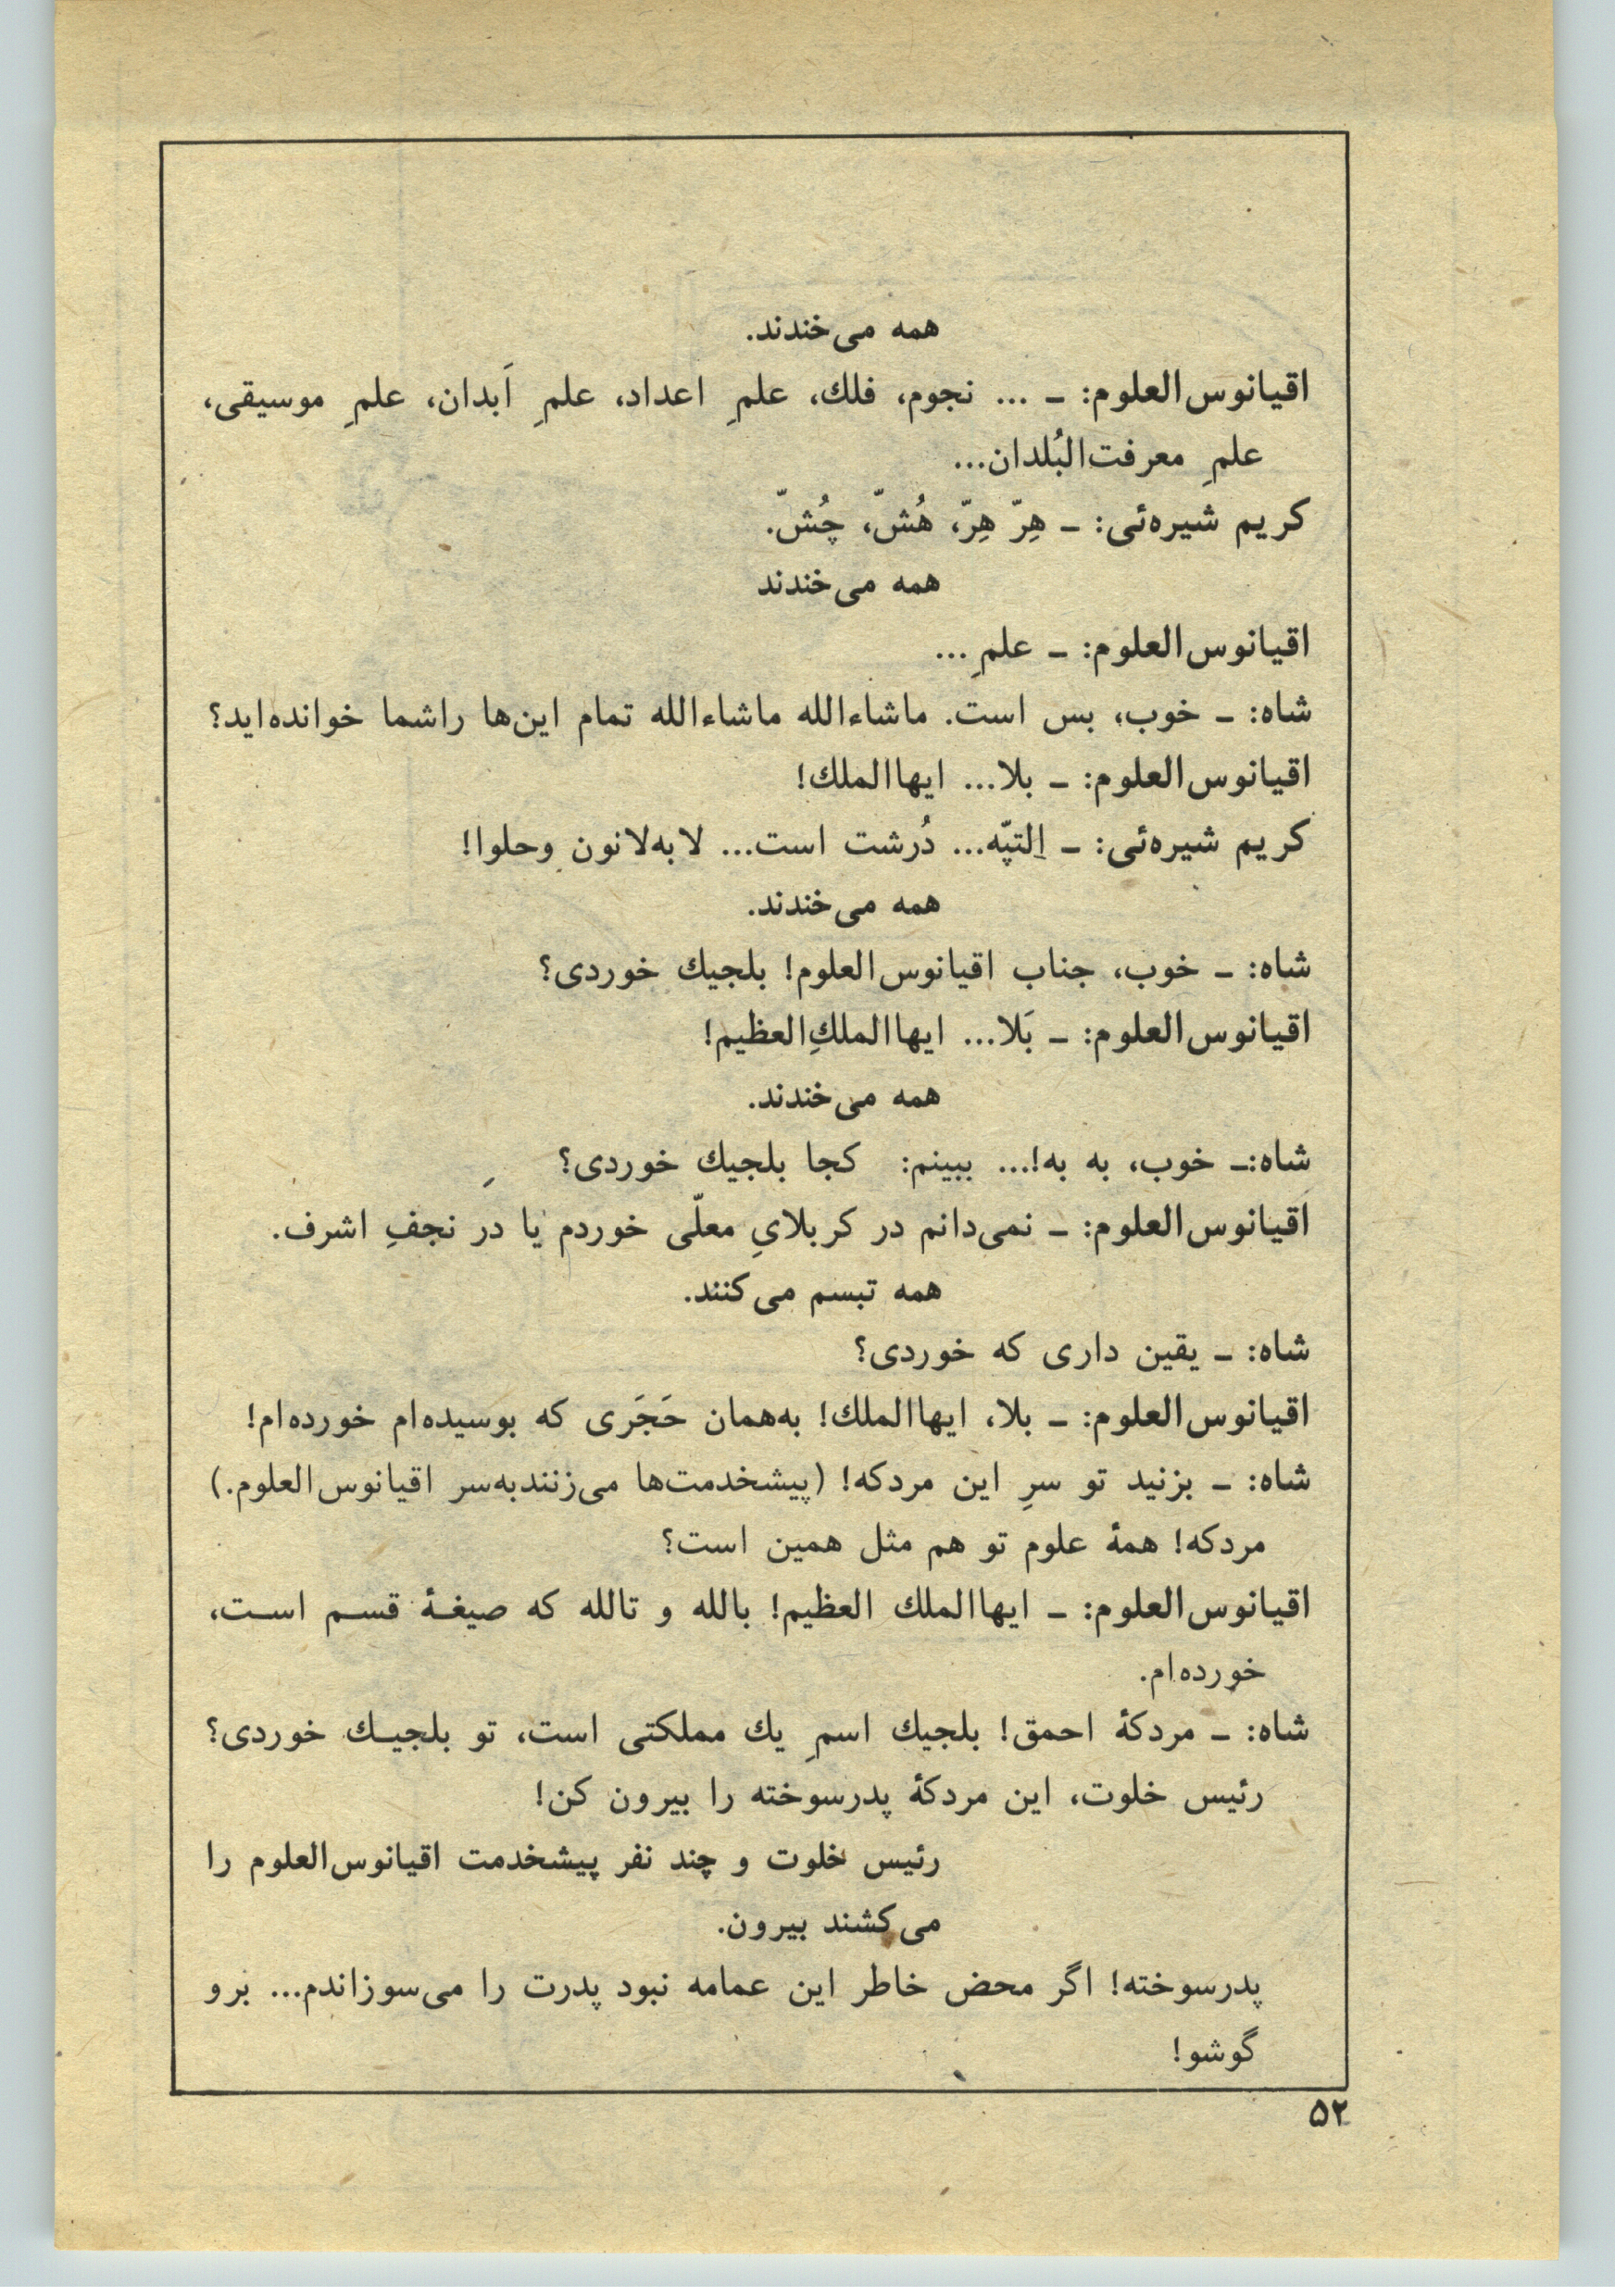 همه می‌خندند.
اقیانوس‌العلوم: ــ ... نجوم، فلك، علمِ اعداد، علمِ اَبدان، علمِ موسیقی،
علمِ معرفت‌البُلدان...
کریم شیره‌ئی: ــ هِرّ هِرّ، هُشّ، چُشّ.
همه می‌خندند
اقیانوس‌العلوم: ــ علمِ...
شاه: ــ خوب، بس است. ماشاءالله ماشاءالله تمام این‌ها راشما خوانده‌اید؟
اقیانوس‌العلوم: ــ بلا... ایهاالملك!
کریم شیره‌ئی: ــ اِلتپّه... دُرشت است... لابه‌لانون وحلوا!
همه می‌خندند.
شاه: ــ خوب، جناب اقیانوس‌العلوم! بلجیك خوردی؟
اقیانوس‌العلوم: ــ بَلا... ایهاالملكِ‌العظیم!
همه می‌خندند.
شاه:ــ خوب، به به!... ببینم: کجا بلجیك خوردی؟
اقیانوس‌العلوم: ــ نمی‌دانم در کربلایِ معلّی خوردم یا در نجفِ اشرف.
همه تبسم می‌کنند.
شاه: ــ یقین داری که خوردی؟
اقیانوس‌العلوم: ــ بلا، ایهاالملك! به‌همان حَجَری که بوسیده‌ام خورده‌ام!
شاه: ــ بزنید تو سرِ این مردکه! (پیشخدمت‌ها می‌زنندبه‌سر اقیانوس‌العلوم.)
مردکه! همهٔ علوم تو هم مثل همین است؟
اقیانوس‌العلوم: ــ ایهاالملك العظیم! بالله و تالله که صیغـهٔ قسـم اسـت،
خورده‌ام.
شاه: ــ مردکهٔ احمق! بلجیك اسمِ یك مملکتی است، تو بلجیـك خوردی؟
رئیس خلوت، این مردکهٔ پدرسوخته را بیرون کن!
رئیس خلوت و چند نفر پیشخدمت اقیانوس‌العلوم را
می‌کشند بیرون.
پدرسوخته! اگر محض خاطر این عمامه نبود پدرت را می‌سوزاندم... برو
گوشو!
۵۲